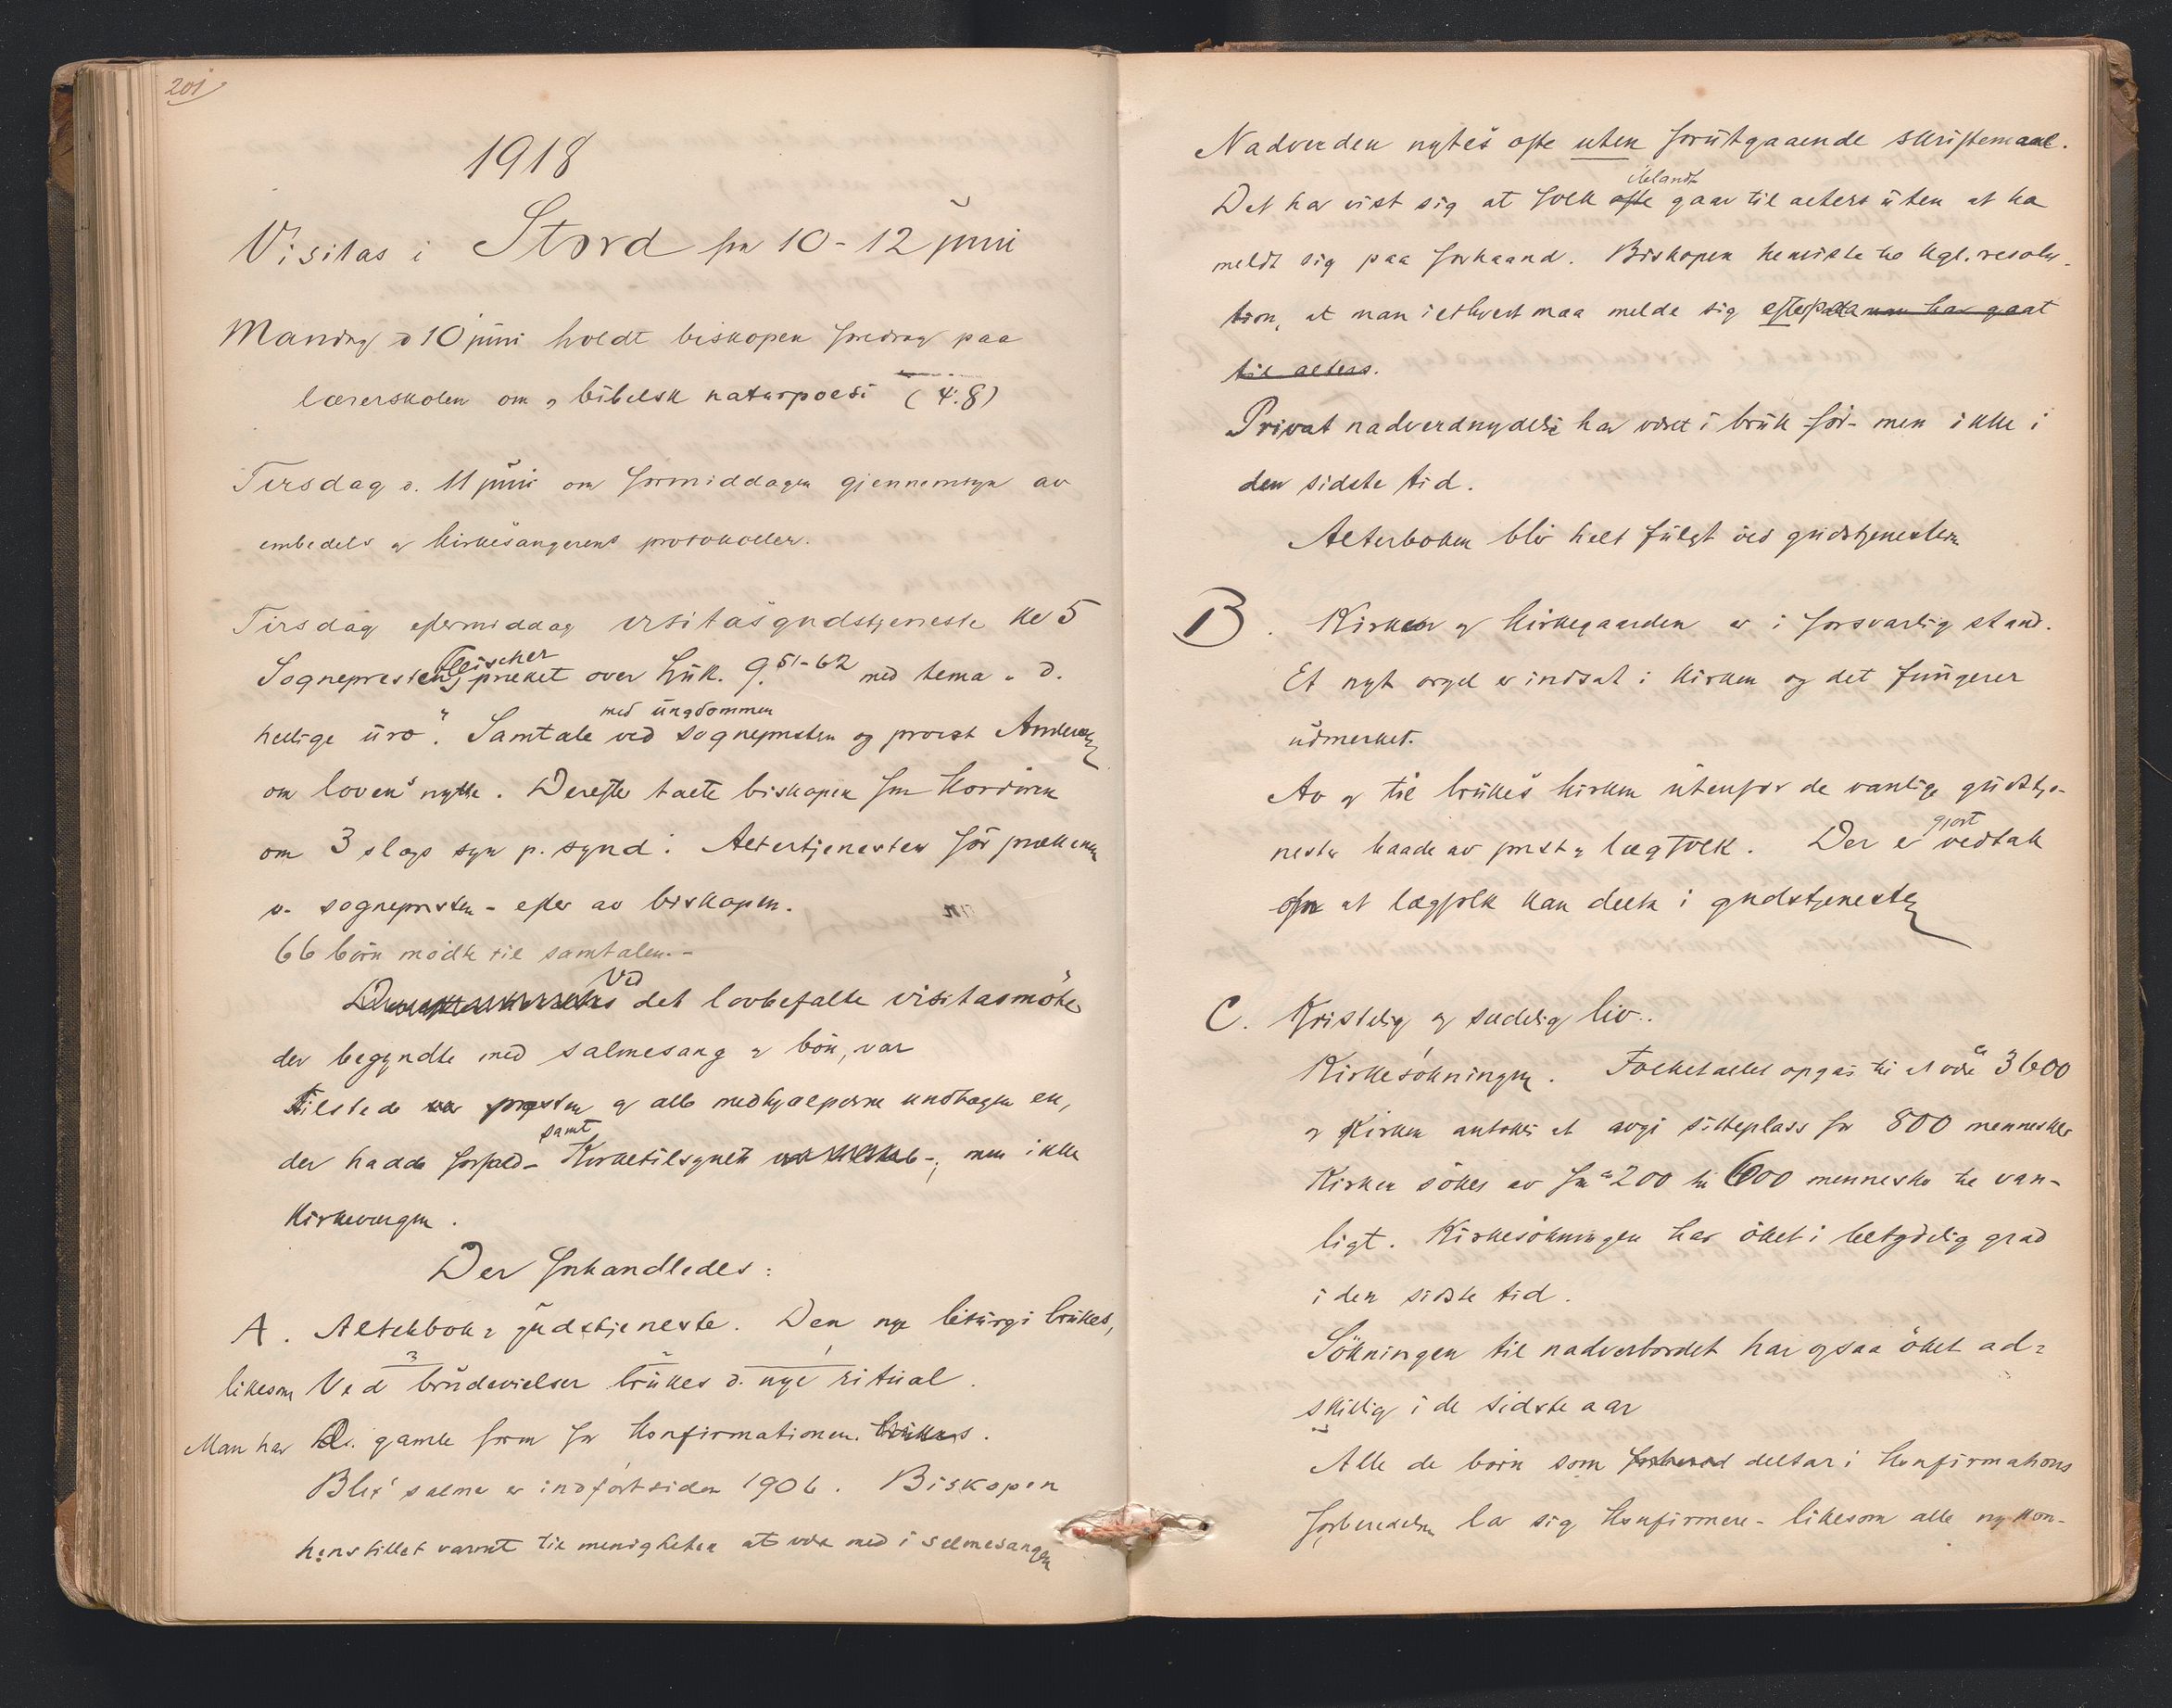 201
1918
Visitas i Stord fra 10-12 juni
Mandag d 10 juni holdt biskopen foredrag paa
lærerskolen om bibelsk naturpoesi (4.8)
Tirsdag d. 11 juni om formiddagen gjennemsyn av
embedets og kirkesangerens protokoller.
Tirsdag eftermiddag visitasgudstjeneste kl 5
Sognepresten Fleischer præket over Luk. 9.51-62 med tema "d.
hellige uro". Samtale med ungdommen ved sognepresten og provst Andersen
om lovens nytte. Derefter talte biskopen fra Kordøren
om 3 slags syn p. synd. Altertjenesten før prækenen
v. sognepresten - efter av biskopen.
66 børn mødte til samtalen.-
Ved det lovbefalte visitasmøte
der begyndte med salmesang og bøn, var
tilstede presten og alle medhjælperne undtagen en,
der hadde forfald - samt Kirketilsynet -, men ikke
Kirkevergen.
Der forhandledes:
A. Alterbok og gudstjeneste. Den nye liturgi brukes,
likesom Ved brudevielser brukes d. nye ritual.
Man har d. gamle form for Konfirmationen. brukes.
Blix' salmer er indført siden 1906. Biskopen
henstillet varmt til menigheten at være med i salmesangen
Nadverden nytes ofte uten forutgaaende skriftemaal.
Det har vist sig at folk ofte iblandt gaar til alters uten at ha
meldt sig paa forhaand. Biskopen henviste til kgl. resolu-
tion, at man i ethvert maa melde sig efterpaa man har gaat
til alters.
Privat nadverdnydelse har været i bruk før - men ikke i
den sidste tid.
Alterboken blir helt fulgt ved gudstjenesten
B. Kirken og kirkegaarden er i forsvarlig stand.
Et nyt orgel er indsat i kirken og det fungerer
udmerket.
Av og til brukes kirken utenfor de vanlige gudstje-
nester baade av prest og lægfolk. Der er gjort vedtak
om at lægfolk kan delta i gudstjenesten
C. Kristelig og sædelig liv.
Kirkesøkningen. Folketallet opgis til at være ca 3600
og Kirken antokes at avgi sitteplass for 800 mennesker
Kirken søkes av fra 200 til 600 mennesker til van-
ligt. Kirkesøkningen har øket i betydelig grad
i den sidste tid.
Søkningen til nadverbordet har ogsaa øket ad-
skillig i de sidste aar
Alle de børn som deltar i Konfirmations
forberedelsen lar sig konfirmere - likesom alle ny kon-